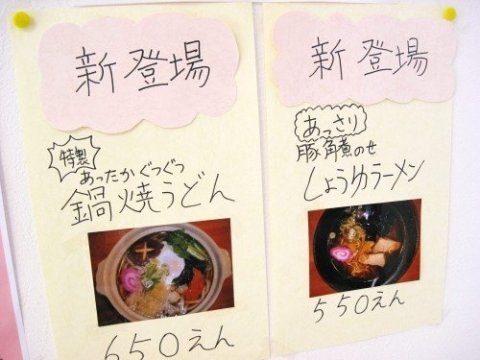 新登場
特製
あったかぐつぐつ
鍋焼うどん
650えん
新登場
あっさり
豚角煮のせ
しょうゆラーメン
550えん